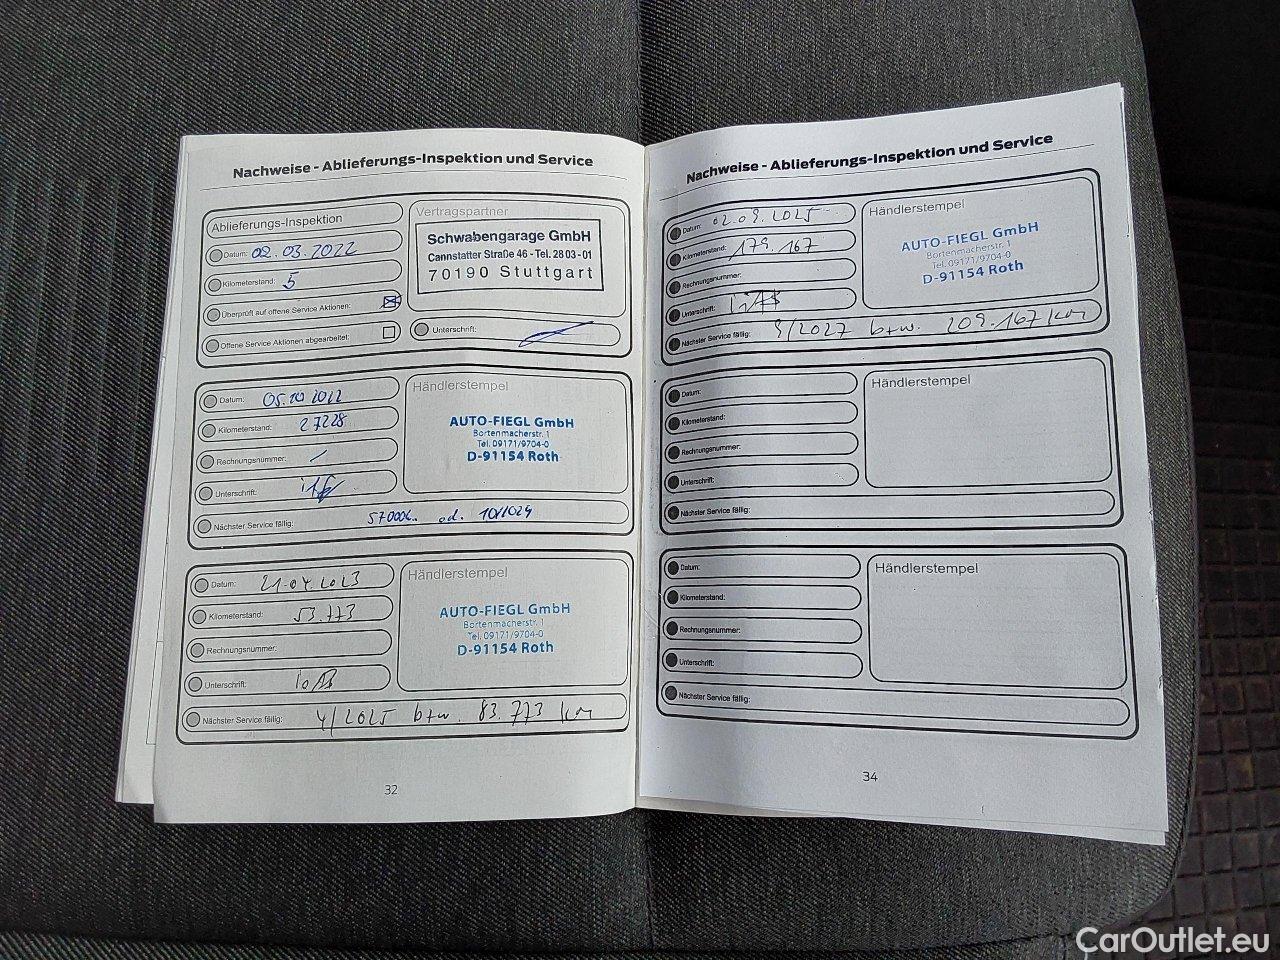 Nachweise - Ablieferungs-Inspektion und Service
Ablieferungs-Inspektion
Datum: 02.03.2022
Kilometerstand: 5
Überprüft auf offene Service Aktionen:
Offene Service Aktionen abgearbeitet:
Vertragspartner
Schwabengarage GmbH
Cannstatter Straße 46 - Tel. 28 03 - 01
70190 Stuttgart
Unterschrift:
Datum: 05.10.2022
Kilometerstand: 27228
Rechnungsnummer: /
Unterschrift:
Nächster Service fällig: od. 10/2024
Händlerstempel
AUTO-FIEGL GmbH
Bortenmacherstr. 1
Tel. 09171/9704-0
D-91154 Roth
Datum: 21.04.2023
Kilometerstand: 53.773
Rechnungsnummer:
Unterschrift:
Nächster Service fällig: 4/2025 bzw. 83.773 km
Händlerstempel
AUTO-FIEGL GmbH
Bortenmacherstr. 1
Tel. 09171/9704-0
D-91154 Roth
32
Nachweise - Ablieferungs-Inspektion und Service
Datum: 02.09.2025
Kilometerstand: 179.167
Rechnungsnummer:
Unterschrift:
Nächster Service fällig: 9/2027 bzw. 209.167 km
Händlerstempel
AUTO-FIEGL GmbH
Bortenmacherstr. 1
Tel. 09171/9704-0
D-91154 Roth
Datum:
Kilometerstand:
Rechnungsnummer:
Unterschrift:
Nächster Service fällig:
Händlerstempel
Datum:
Kilometerstand:
Rechnungsnummer:
Unterschrift:
Nächster Service fällig:
Händlerstempel
34
CarOutlet.eu